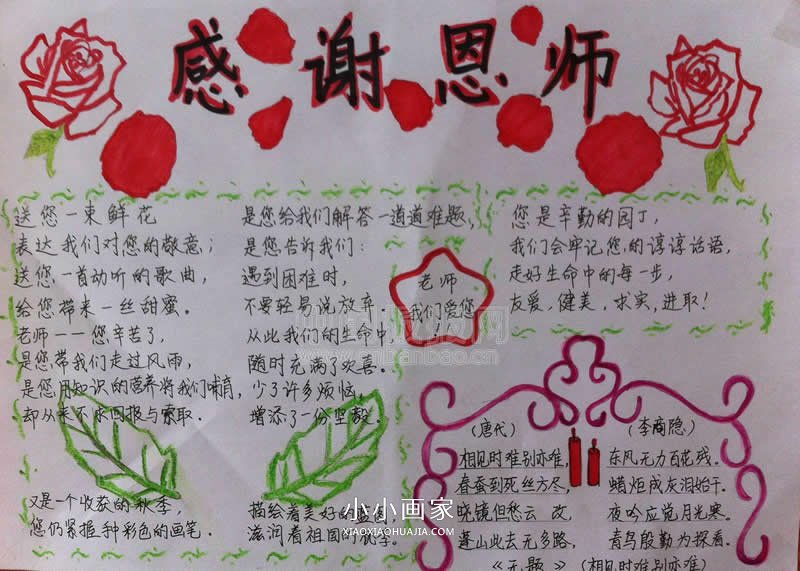 感谢恩师
送您一束鲜花
表达我们对您的敬意；
送您一首动听的歌曲，
给您带来一丝甜蜜。
老师——您辛苦了，
是您带我们走过风雨，
是您用知识的营养将我们哺育，
却从来不求回报与索取．
又是一个收获的秋季，
您仍紧握种彩色的画笔．
是您给我们解答一道道难题，
是您告诉我们：
遇到困难时，
不要轻易说放弃
从此我们的生命中，
随时充满了欢喜。
少了许多烦恼，
增添了一份坚毅
描绘着美好的
滋润着祖国
老师
我们爱您
！
您是辛勤的园丁，
我们会牢记您的谆谆话语，
走好生命中的每一步，
友爱，健美，求实，进取！
（唐代） （李商隐）
相见时难别亦难， 东风无力百花残．
春蚕到死丝方尽， 蜡炬成灰泪始干．
晓镜但愁云 改， 夜吟应说月光寒．
蓬山此去无多路， 青鸟殷勤为探看．
《无题》（相见时难别亦难）
www.cnbanbao.cn
小小画家
XIAOXIAOHUAJIA.COM